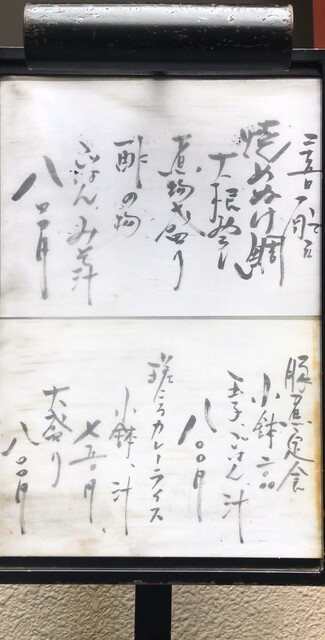 焼めぬけ鯛
大根おろし
煮物盛り
酢の物
ごはん、みそ汁
八〇〇円
豚煮定食
小鉢二品
玉子、ごはん、汁
八〇〇円
カレーライス
小鉢、汁
七五〇円
大盛り
八〇〇円